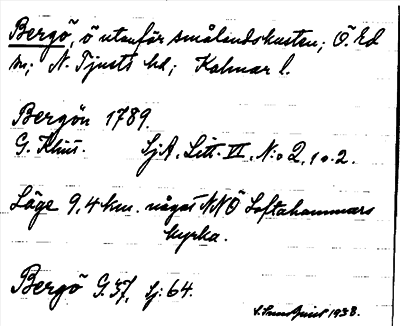 Bergö, ö utanför smålandskusten; Ö. Ed
sn; N. Tjusts hd; Kalmar l.
Bergön 1789.
G. Klint. SjA, Litt. III, N:o 2, 1 o. 2.
Läge 9,4 km. något NNÖ Loftahammars
kyrka.
Bergö G. 37, sj: 64.
1938.